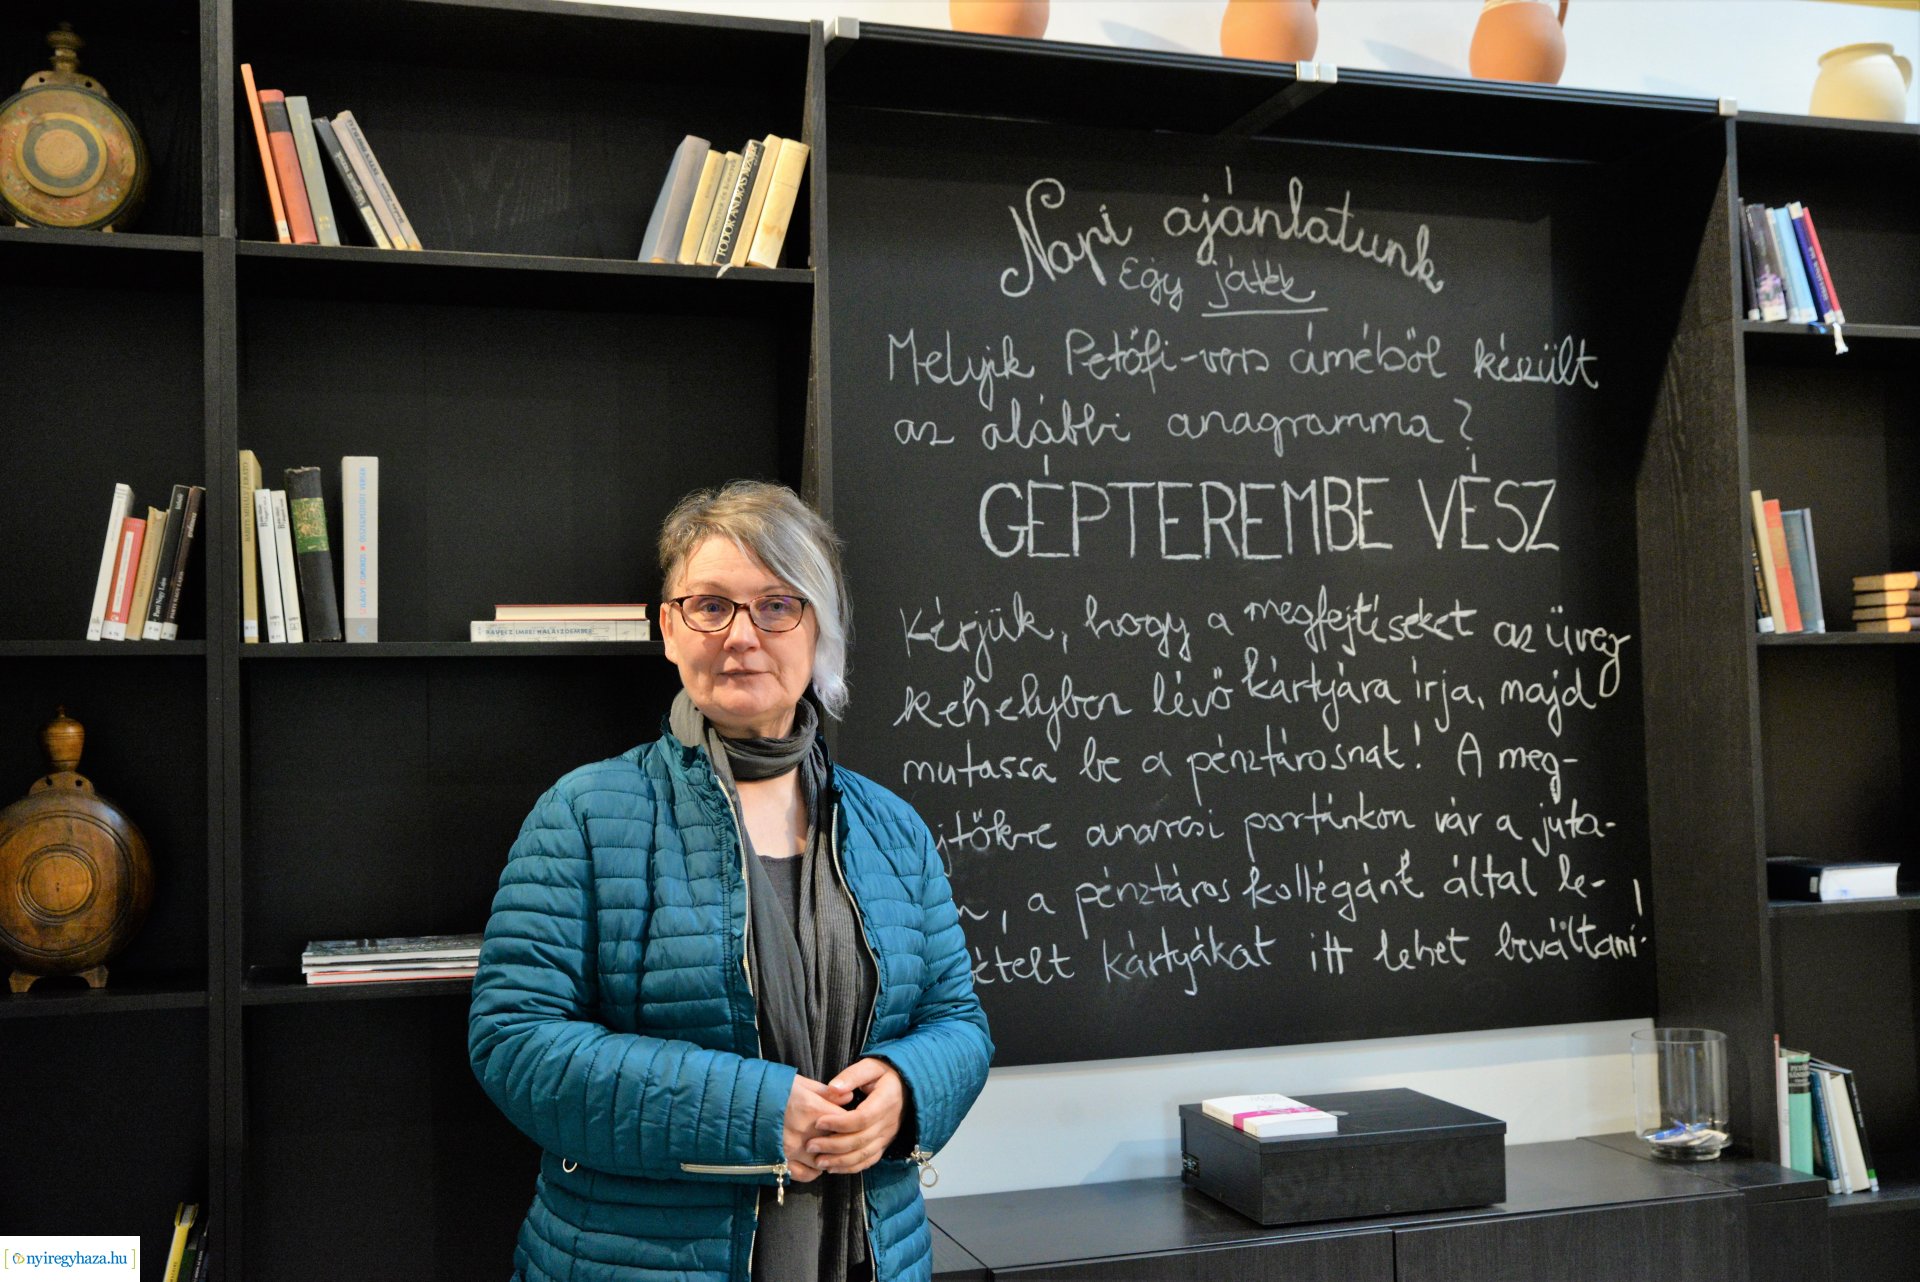 Napi ajánlatunk
Egy játék
Melyik Petőfi-vers címéből készült
az alábbi anagramma?
GÉPTEREMBE VÉSZ
Kérjük, hogy a megfejtéseket az üveg
kehelyben lévő kártyára írja, majd
mutassa be a pénztárosnak! A meg-
jtőkre anarcsi portánkon vár a juta-
, a pénztáros kollégánk által le-
ételt kártyákat itt lehet beváltani!
FODOR ANDRÁS
RAVECZ IMRE: HALÁSZÓEMBER
nyiregyhaza.hu